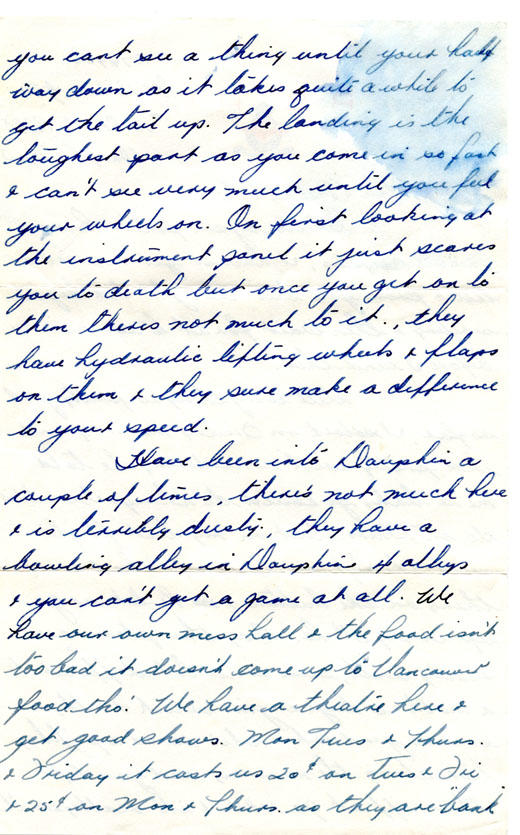 you cant see a thing until your half
way down as it takes quite a while to
get the tail up. The landing is the
toughest part as you come in so fast
& can't see very much until you feel
your wheels on. On first looking at
the instrument panel it just scares
you to death but once you get on to
them theres not much to it., they
have hydraulic lifting wheels & flaps
on them & they sure make a difference
to your speed.
Have been into Dauphin a
couple of times, there's not much here
& is terribly dusty., they have a
bowling alley in Dauphin 4 alleys
& you can't get a game at all. We
have our own mess hall & the food isn't
too bad it doesn't come up to Vancouver
food tho'. We have a theatre here &
get good shows. Mon Tues & Thurs.
& Friday it costs us 20¢ on Tues & Fri
& 25¢ on Mon & Thurs. as they are "bank